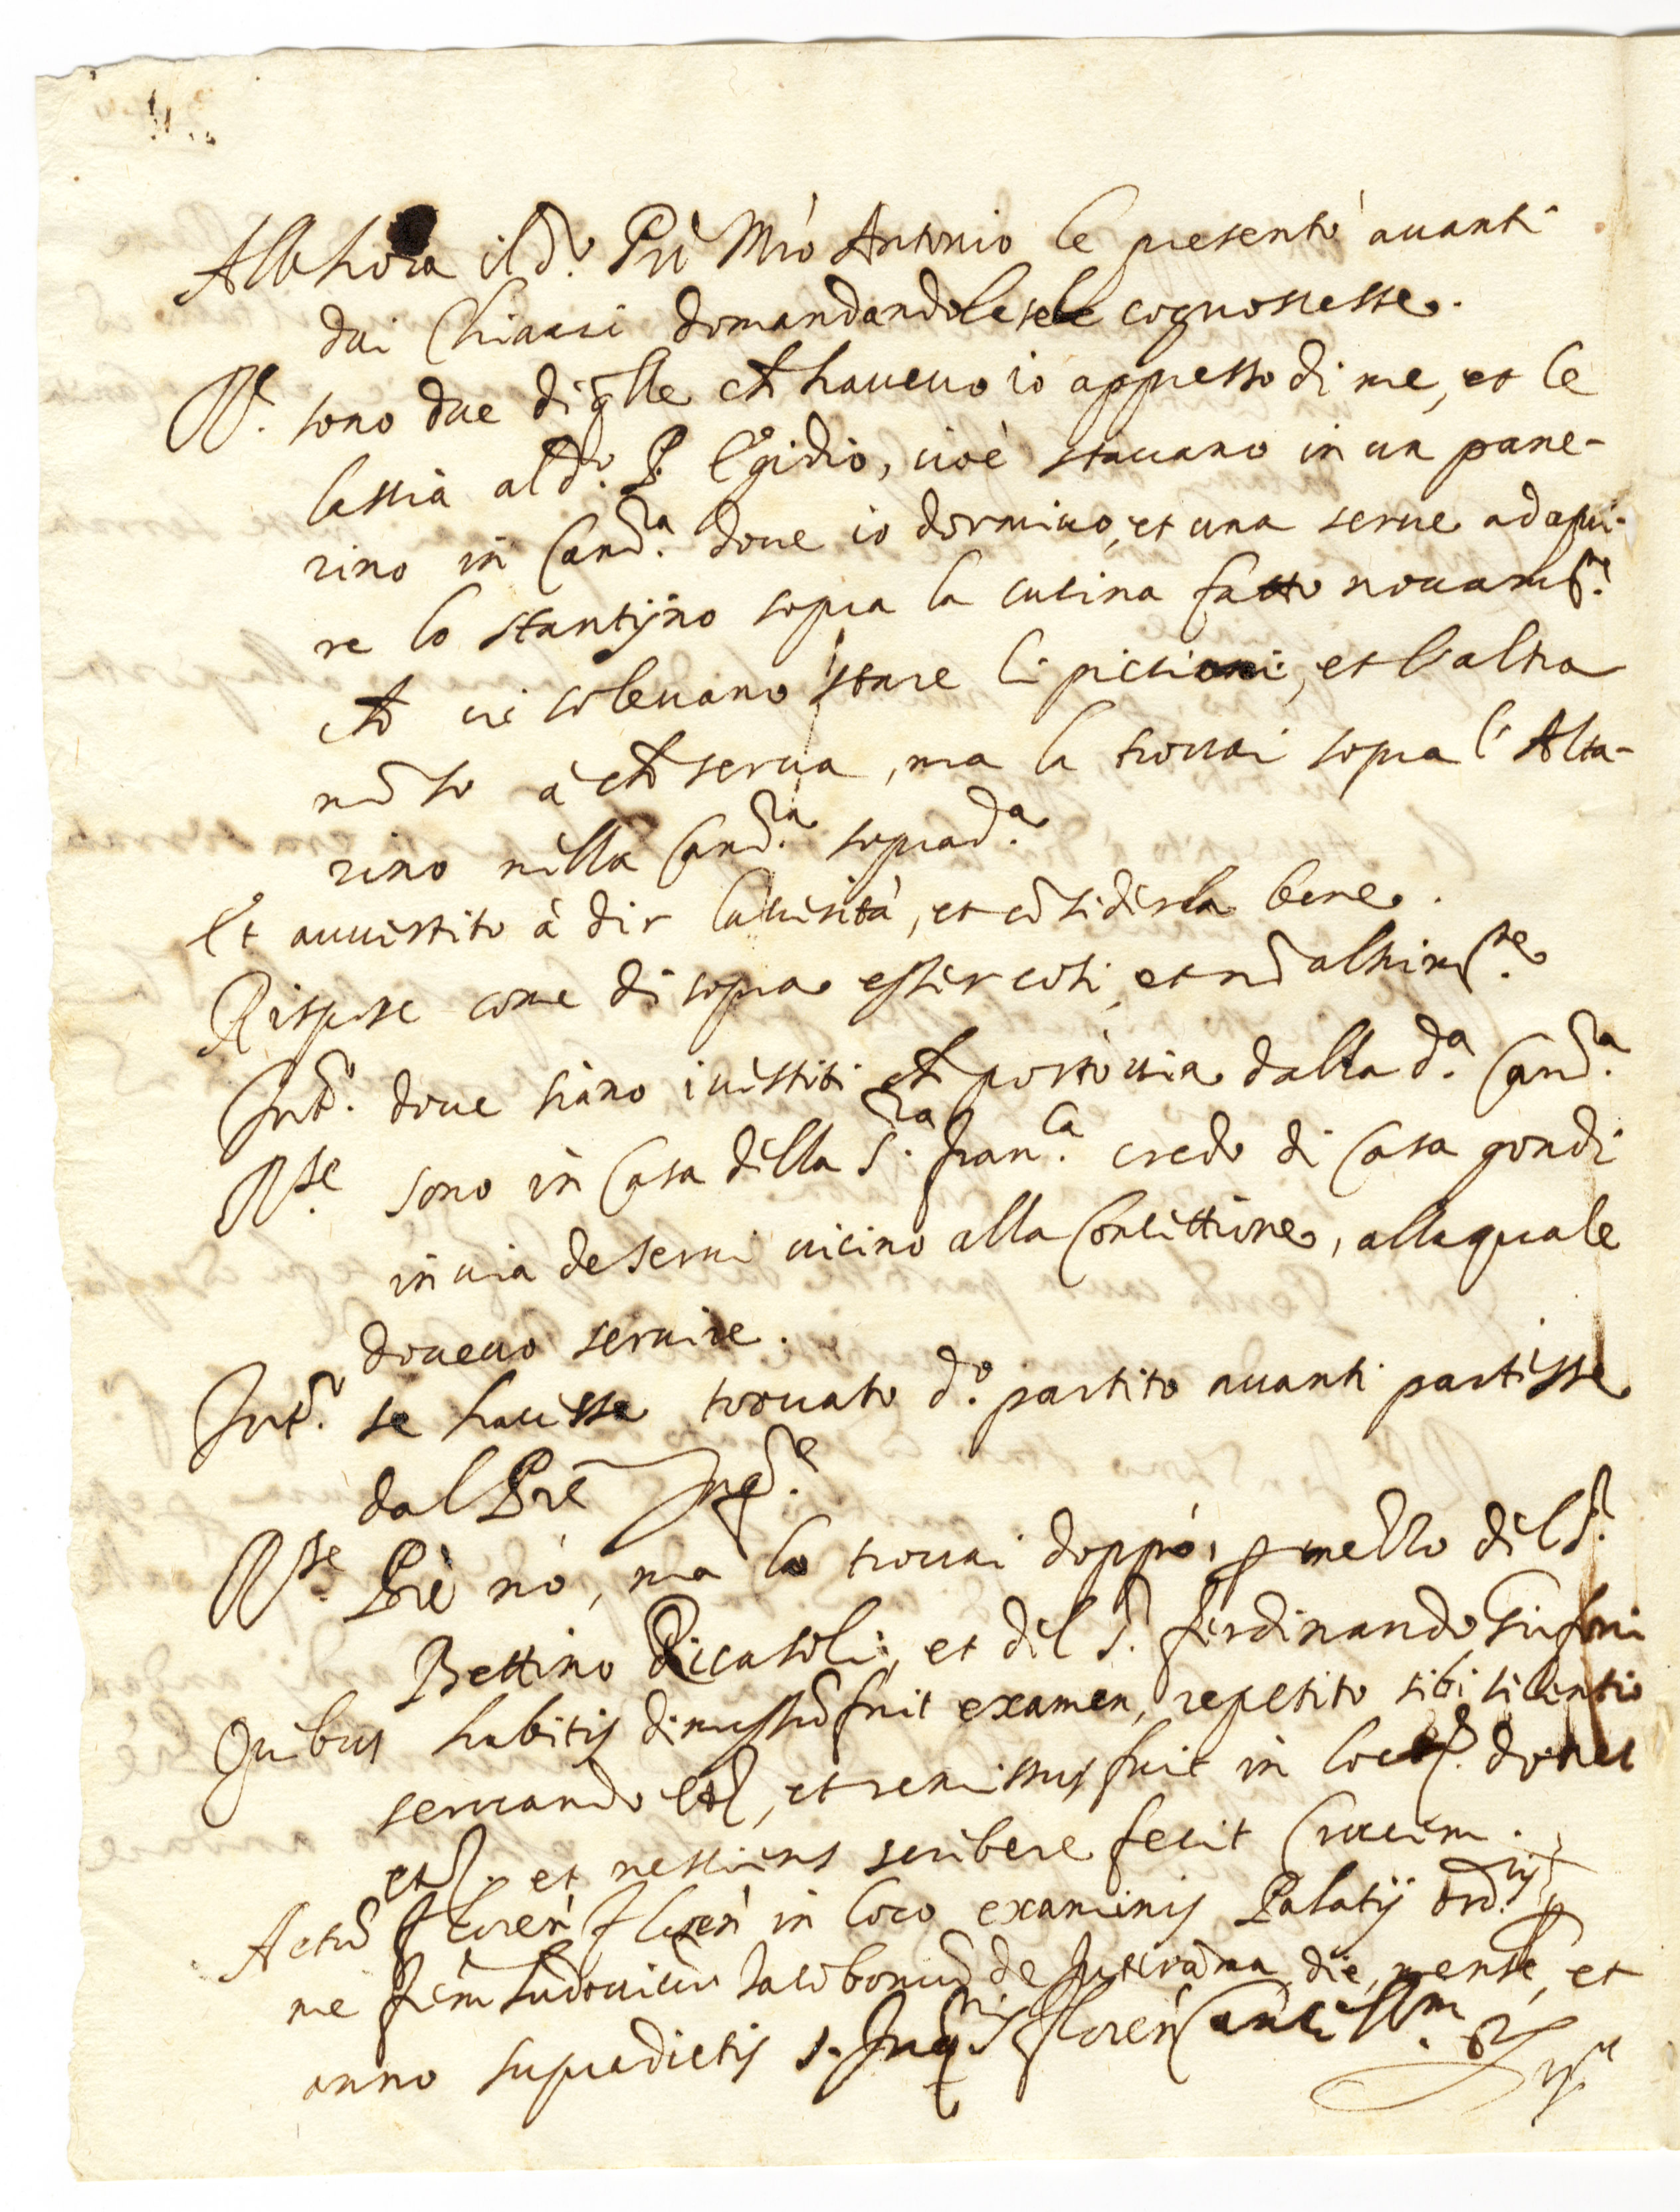 Allhora il d.º Prè Mrò Antonio le presentò auanti
dui Chiaui domandandole se le cognoscesse.
R.e sono due di qlle ch haueuo io appresso di me, et le
lassia al d.to P. Egidio, cioè stauano in un pane-
rino in Cam.ra doue io dormiuo, et una serue ad apri-
re lo stantijno sopra la cucina fatto nouam.te
ch ci soleuano stare li piccioni, et l'altra
nō so à ch serua, ma la trouai sopra l'Alta-
rino nella Cam.ra soprad.a
Et auuertito à dir la uerità, et cōsiderla bene.
Rispose come di sopra esser cosi, et nō altrim.te
Int.º doue siano i uestiti ch portò uia dalla d.a Cam.ra
R.se sono in Casa della S.ra Fran.ca credo di Casa gondi
in uia de serui uicino alla Concettione, alla quale
doueuo seruire.
Int.º se hauesse trouato d.º partito auanti partisse
dal Prē Inq.re
R.se Prè nò, ma lo trouai doppò, p mezzo del S.r
Bettino Riccasoli, et del S.r ferdinando
Quibus habitis dimissū fuit examen, repetito sibi silentio
seruando etc, et remissus fuit in loc. donec
etc. et nesciens scribere fecit Crucem.
Actū Floreñ in loco examinis Palatij ord.rij p
me frēm Ludouicū Jacobonū de Interamna die, mense, et
anno supradictis S. Inq.nis floreñ Cancell.m